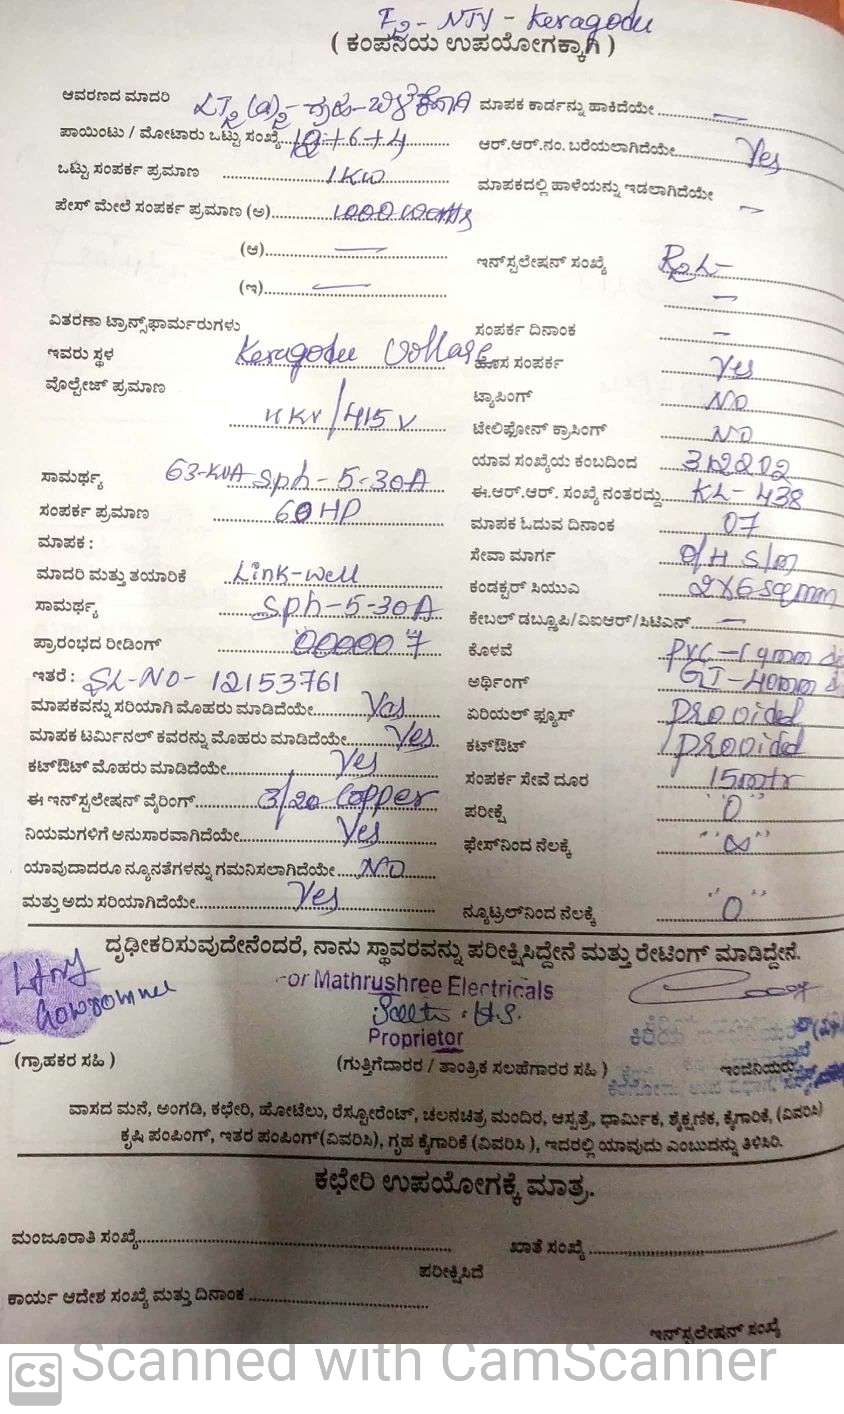 F2 - NJY - Keragodu
( ಕಂಪನಿಯ ಉಪಯೋಗಕ್ಕಾಗಿ )
ಆವರಣದ ಮಾದರಿ LT2(a)2 - ಗೃಹ - ಬಳಕೆಗಾಗಿ
ಪಾಯಿಂಟು / ಮೋಟಾರು ಒಟ್ಟು ಸಂಖ್ಯೆ +6+4
ಒಟ್ಟು ಸಂಪರ್ಕ ಪ್ರಮಾಣ 1KW
ಪೇಸ್ ಮೇಲೆ ಸಂಪರ್ಕ ಪ್ರಮಾಣ (ಅ) 1000 watts
(ಆ) —
(ಇ) —
ವಿತರಣಾ ಟ್ರಾನ್ಸ್‌ಫಾರ್ಮರುಗಳು
ಇವರು ಸ್ಥಳ Keragodu Vollage
ವೊಲ್ಟೇಜ್ ಪ್ರಮಾಣ
11KV/415V
ಸಾಮರ್ಥ್ಯ 63-KVA Sph-5-30A
ಸಂಪರ್ಕ ಪ್ರಮಾಣ 60HP
ಮಾಪಕ :
ಮಾದರಿ ಮತ್ತು ತಯಾರಿಕೆ Link-well
ಸಾಮರ್ಥ್ಯ Sph-5-30A
ಪ್ರಾರಂಭದ ರೀಡಿಂಗ್ 000007
ಇತರೆ : SL-NO- 12153761
ಮಾಪಕವನ್ನು ಸರಿಯಾಗಿ ಮೊಹರು ಮಾಡಿದೆಯೇ Yes
ಮಾಪಕ ಟರ್ಮಿನಲ್ ಕವರನ್ನು ಮೊಹರು ಮಾಡಿದೆಯೇ Yes
ಕಟ್‌ಔಟ್ ಮೊಹರು ಮಾಡಿದೆಯೇ Yes
ಈ ಇನ್‌ಸ್ಟಲೇಷನ್ ವೈರಿಂಗ್ 3/20 Copper
ನಿಯಮಗಳಿಗೆ ಅನುಸಾರವಾಗಿದೆಯೇ Yes
ಯಾವುದಾದರೂ ನ್ಯೂನತೆಗಳನ್ನು ಗಮನಿಸಲಾಗಿದೆಯೇ NO
ಮತ್ತು ಅದು ಸರಿಯಾಗಿದೆಯೇ Yes
ಮಾಪಕ ಕಾರ್ಡನ್ನು ಹಾಕಿದೆಯೇ —
ಆರ್.ಆರ್.ನಂ. ಬರೆಯಲಾಗಿದೆಯೇ Yes
ಮಾಪಕದಲ್ಲಿ ಹಾಳೆಯನ್ನು ಇಡಲಾಗಿದೆಯೇ —
ಇನ್‌ಸ್ಟಲೇಷನ್ ಸಂಖ್ಯೆ R2L-
—
ಸಂಪರ್ಕ ದಿನಾಂಕ —
ಹೊಸ ಸಂಪರ್ಕ Yes
ಟ್ಯಾಪಿಂಗ್ NO
ಟೇಲಿಫೋನ್ ಕ್ರಾಸಿಂಗ್ NO
ಯಾವ ಸಂಖ್ಯೆಯ ಕಂಬದಿಂದ
ಈ.ಆರ್.ಆರ್. ಸಂಖ್ಯೆ ನಂತರದ್ದು KL-438
ಮಾಪಕ ಓದುವ ದಿನಾಂಕ 07
ಸೇವಾ ಮಾರ್ಗ O/H S/m
ಕಂಡಕ್ಟರ್ ಸಿಯುಎ 2X6 sqmm
ಕೇಬಲ್ ಡಬ್ಲೂಪಿ/ವಿಐಆರ್/ಸಿಟಿಎನ್ —
ಕೊಳವೆ PVC-19mm
ಅರ್ಥಿಂಗ್ GI-40mm
ಏರಿಯಲ್ ಫ್ಯೂಸ್ provided
ಕಟ್‌ಔಟ್ provided
ಸಂಪರ್ಕ ಸೇವೆ ದೂರ 15mtr
ಪರೀಕ್ಷೆ "0"
ಫೇಸ್‌ನಿಂದ ನೆಲಕ್ಕೆ "∞"
ನ್ಯೂಟ್ರಲ್‌ನಿಂದ ನೆಲಕ್ಕೆ "0"
ದೃಢೀಕರಿಸುವುದೇನೆಂದರೆ, ನಾನು ಸ್ಥಾವರವನ್ನು ಪರೀಕ್ಷಿಸಿದ್ದೇನೆ ಮತ್ತು ರೇಟಿಂಗ್ ಮಾಡಿದ್ದೇನೆ.
For Mathrushree Electricals
Proprietor
(ಗ್ರಾಹಕರ ಸಹಿ )
(ಗುತ್ತಿಗೆದಾರರ / ತಾಂತ್ರಿಕ ಸಲಹೆಗಾರರ ಸಹಿ )
ಇಂಜಿನಿಯರು
ವಾಸದ ಮನೆ, ಅಂಗಡಿ, ಕಛೇರಿ, ಹೋಟೆಲು, ರೆಸ್ಟೋರೆಂಟ್, ಚಲನಚಿತ್ರ ಮಂದಿರ, ಆಸ್ಪತ್ರೆ, ಧಾರ್ಮಿಕ, ಶೈಕ್ಷಣಿಕ, ಕೈಗಾರಿಕೆ, (ವಿವರಿಸಿ)
ಕೃಷಿ ಪಂಪಿಂಗ್, ಇತರ ಪಂಪಿಂಗ್(ವಿವರಿಸಿ), ಗೃಹ ಕೈಗಾರಿಕೆ (ವಿವರಿಸಿ ), ಇದರಲ್ಲಿ ಯಾವುದು ಎಂಬುದನ್ನು ತಿಳಿಸಿರಿ.
ಕಛೇರಿ ಉಪಯೋಗಕ್ಕೆ ಮಾತ್ರ.
ಮಂಜೂರಾತಿ ಸಂಖ್ಯೆ
ಖಾತೆ ಸಂಖ್ಯೆ
ಪರೀಕ್ಷಿಸಿದೆ
ಕಾರ್ಯ ಆದೇಶ ಸಂಖ್ಯೆ ಮತ್ತು ದಿನಾಂಕ
ಇನ್‌ಸ್ಟಲೇಷನ್ ಸಂಖ್ಯೆ
CS Scanned with CamScanner